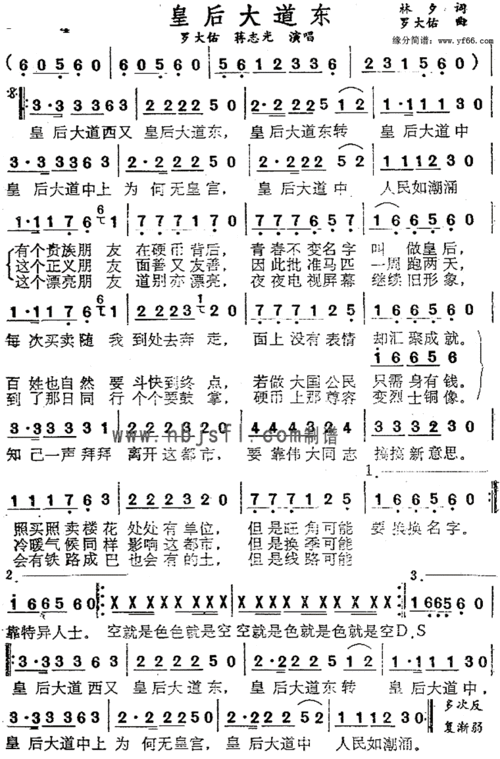 皇后大道东
林夕 词
罗大佑 曲
罗大佑 蒋志光 演唱
缘分简谱：www.yf66.com
(60560 | 60560 | 56012336 | 231560)
3·333363 | 2·222250 | 2·2222512 | 1·1111230
皇后大道西又 皇后大道东， 皇后大道东转 皇后大道中
3·3333230 | 2·222250 | 2·22252 | 1111230
皇后大道中上 为何无皇宫， 皇后大道中 人民如潮涌
1·1176 1 | 2·222250 | 7777657 | 166560
有个贵族朋友 在硬币背后， 青春不变名字 叫做皇后，
这个正义朋友 面善又友善， 因此批准马匹 一周跑两天，
这个漂亮朋友 道别亦漂亮， 夜夜电视屏幕 继续旧形象，
1·1176 1 | 2222320 | 7777657 | 166560
每次买卖随我 到处去奔走， 面上没有表情 却汇聚成就。
166560
百姓也自然要 斗快到终点， 若做大国公民 只需身有钱。
到了那日同行 个个要鼓掌， 硬币上那尊容 变烈士铜像。
www.nbjsfl.com制谱
知己一声拜拜 离开这都市， 要靠伟大同志 搞搞新意思。
1.
1111763 | 2222250 | 7777125
照买照卖楼花 处处有单位， 但是旺角可能 要换换名字。
冷暖气候同样 影响这都市， 但是换季可能
会有铁路成巴 也会有的士， 但是线路可能
2.
3.
166560 | X XXX XXX | X XXX XXX | 166560
靠特异人士。 空就是色色就是空 空就是色就是色就是空D.S
3·333363 | 2·222250 | 2·2222512 | 1·111230
皇后大道西又 皇后大道东， 皇后大道东转 皇后大道中，
3·3333230 | 2·222250 | 2·22252 | 1111230
多次反
复渐弱
皇后大道中上为 何无皇宫， 皇后大道中 人民如潮涌。